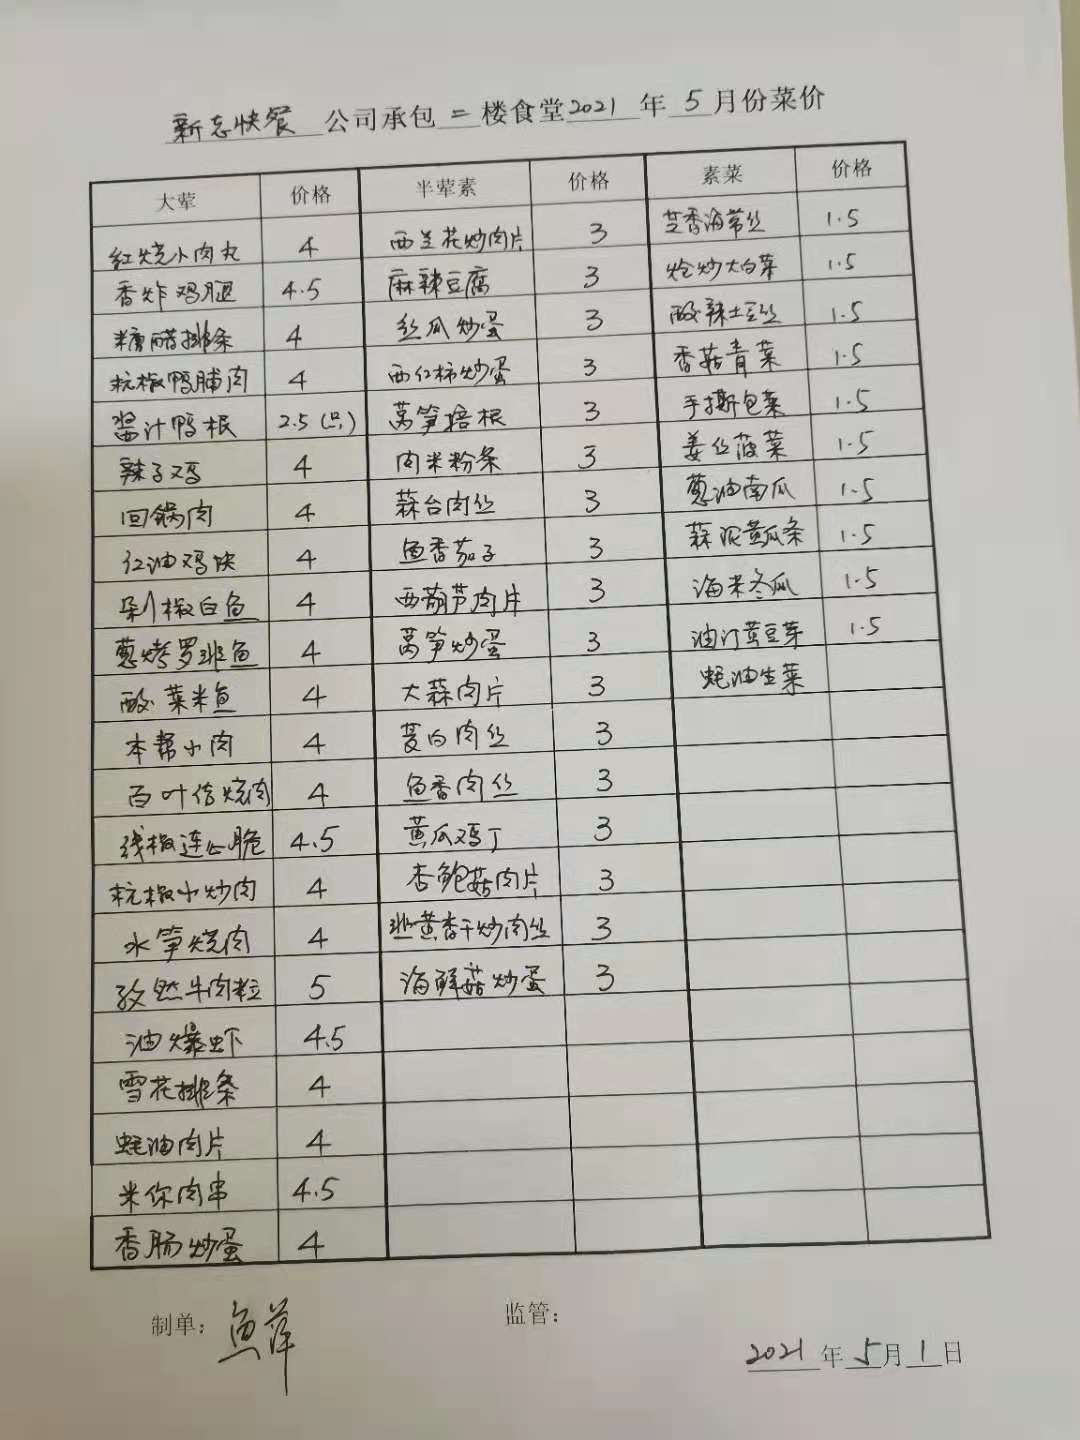 新志快餐 公司承包 二 楼食堂 2021 年 5 月份菜价
大荤 价格 半荤素 价格 素菜 价格
红烧小肉丸 4 西兰花炒肉片 3 芝香海带丝 1.5
香炸鸡腿 4.5 麻辣豆腐 3 炝炒大白菜 1.5
糖醋排条 4 丝瓜炒蛋 3 酸辣土豆丝 1.5
杭椒鸭脯肉 4 西红柿炒蛋 3 香菇青菜 1.5
酱汁鸭根 2.5(只) 莴笋捂根 3 手撕包菜 1.5
辣子鸡 4 肉米粉条 3 姜丝菠菜 1.5
回锅肉 4 蒜台肉丝 3 葱油南瓜 1.5
红油鸡块 4 鱼香茄子 3 蒜泥黄瓜条 1.5
剁椒白鱼 4 西葫芦肉片 3 海米冬瓜 1.5
葱烤罗非鱼 4 莴笋炒蛋 3 油汀黄豆芽 1.5
酸菜米鱼 4 大蒜肉片 3 蚝油生菜
本帮小肉 4 茭白肉丝 3
百叶结烧肉 4 鱼香肉丝 3
线椒连心脆 4.5 黄瓜鸡丁 3
杭椒小炒肉 4 杏鲍菇肉片 3
水笋烧肉 4 韭黄香干炒肉丝 3
孜然牛肉粒 5 海鲜菇炒蛋 3
油爆虾 4.5
雪花排条 4
蚝油肉片 4
米你肉串 4.5
香肠炒蛋 4
制单: 监管:
2021 年 5 月 1 日